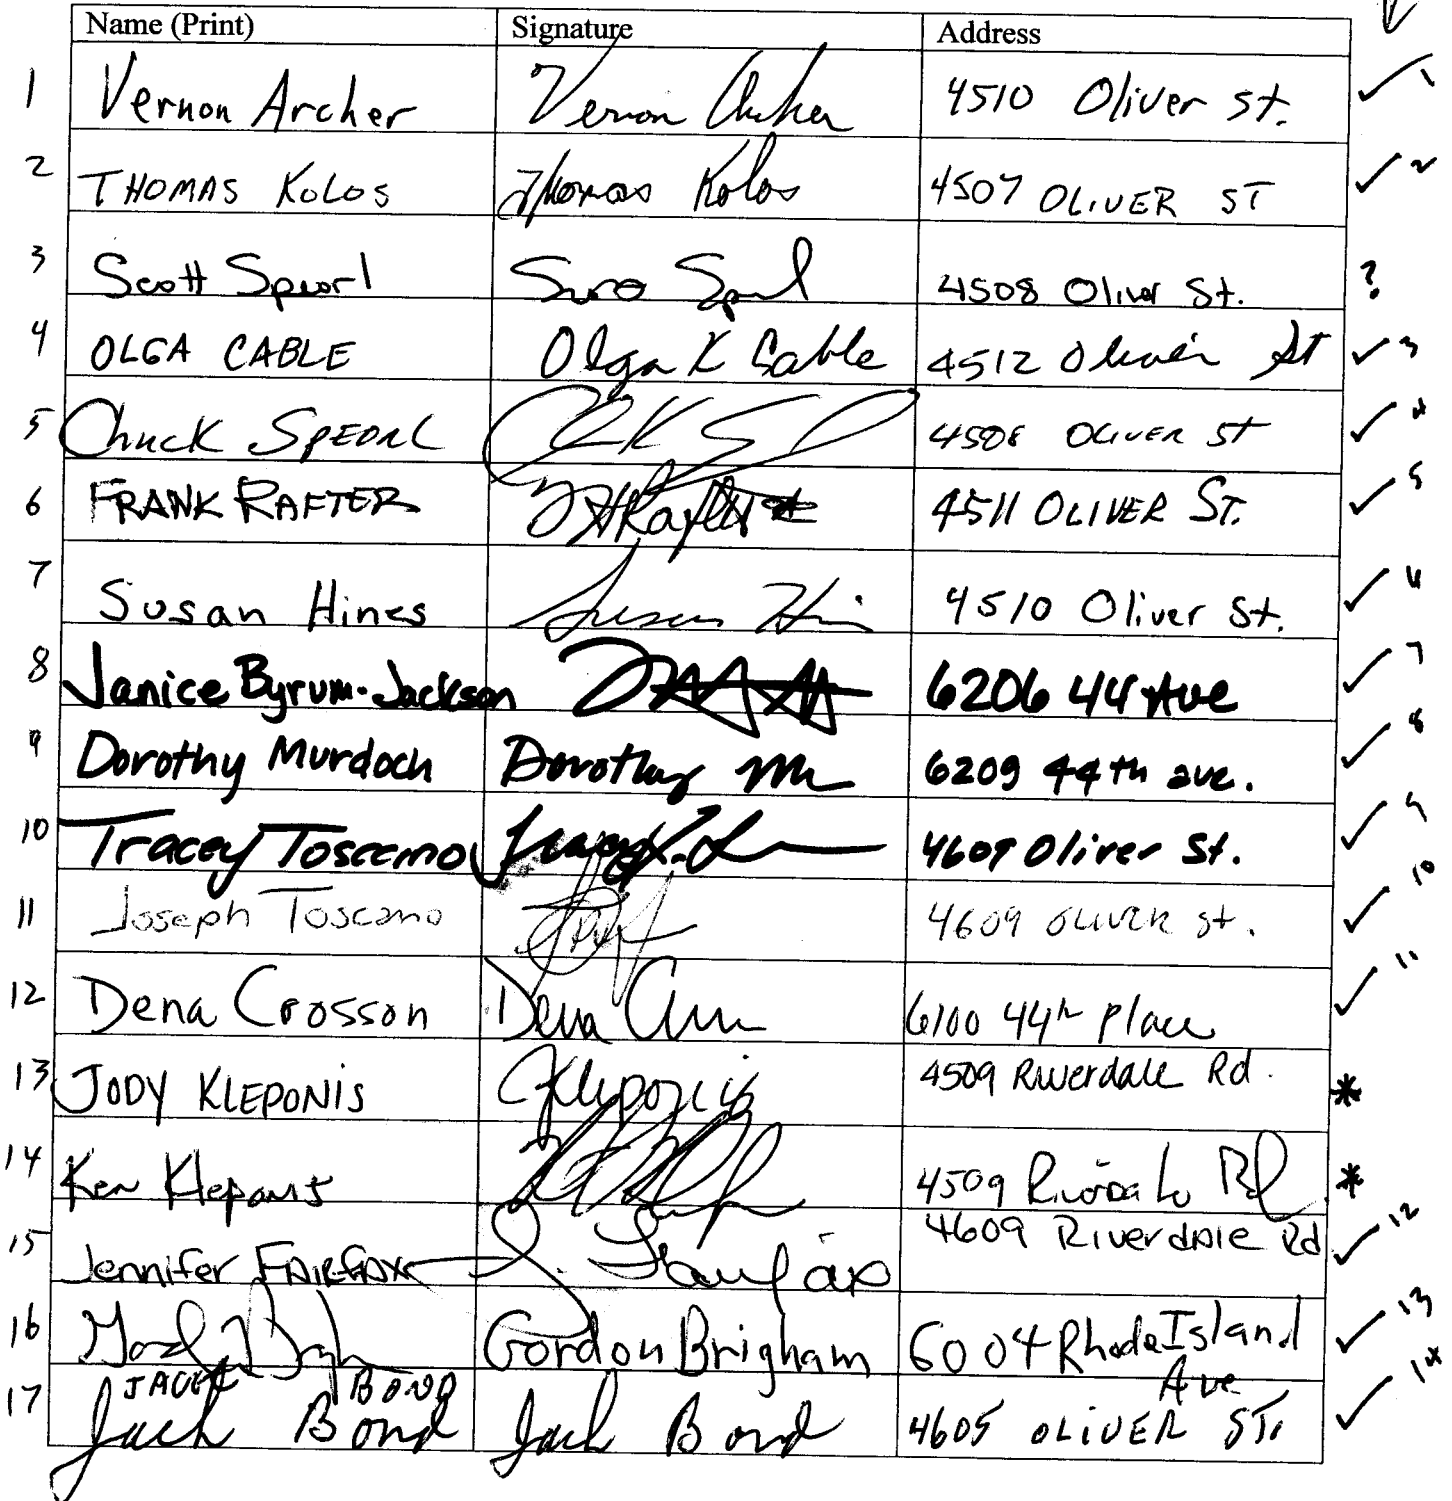 Name (Print) Signature Address
1 Vernon Archer Vernon Archer 4510 Oliver St. ✓ 1
2 THOMAS KOLOS Thomas Kolos 4507 OLIVER ST ✓ 2
3 Scott Spearl 4508 Oliver St. ?
4 OLGA CABLE Olga K Cable 4512 Oliver St ✓ 3
5 Chuck SPEARL 4508 OLIVER ST ✓ 4
6 FRANK RAFTER 4511 OLIVER ST. ✓ 5
7 Susan Hines Susan Hines 4510 Oliver St. ✓ 6
8 Janice Byrum-Jackson 6206 44 Ave ✓ 7
9 Dorothy Murdoch Dorothy 6209 44th ave. ✓ 8
10 Tracey Toscano 4609 Oliver St. ✓ 9
11 Joseph Toscano 4609 OLIVER st. ✓ 10
12 Dena Crosson Dena 6100 44th Place ✓ 11
13 JODY KLEPONIS JKleponis 4509 Riverdale Rd. *
14 Ken Kleponis 4509 Riverdale Rd *
15 Jennifer FAIRFAX J. Fairfax 4609 Riverdale Rd ✓ 12
16 Gordon Brigham 6004 Rhode Island Ave ✓ 13
JACK BOND
17 Jack Bond Jack Bond 4605 OLIVER ST. ✓ 14